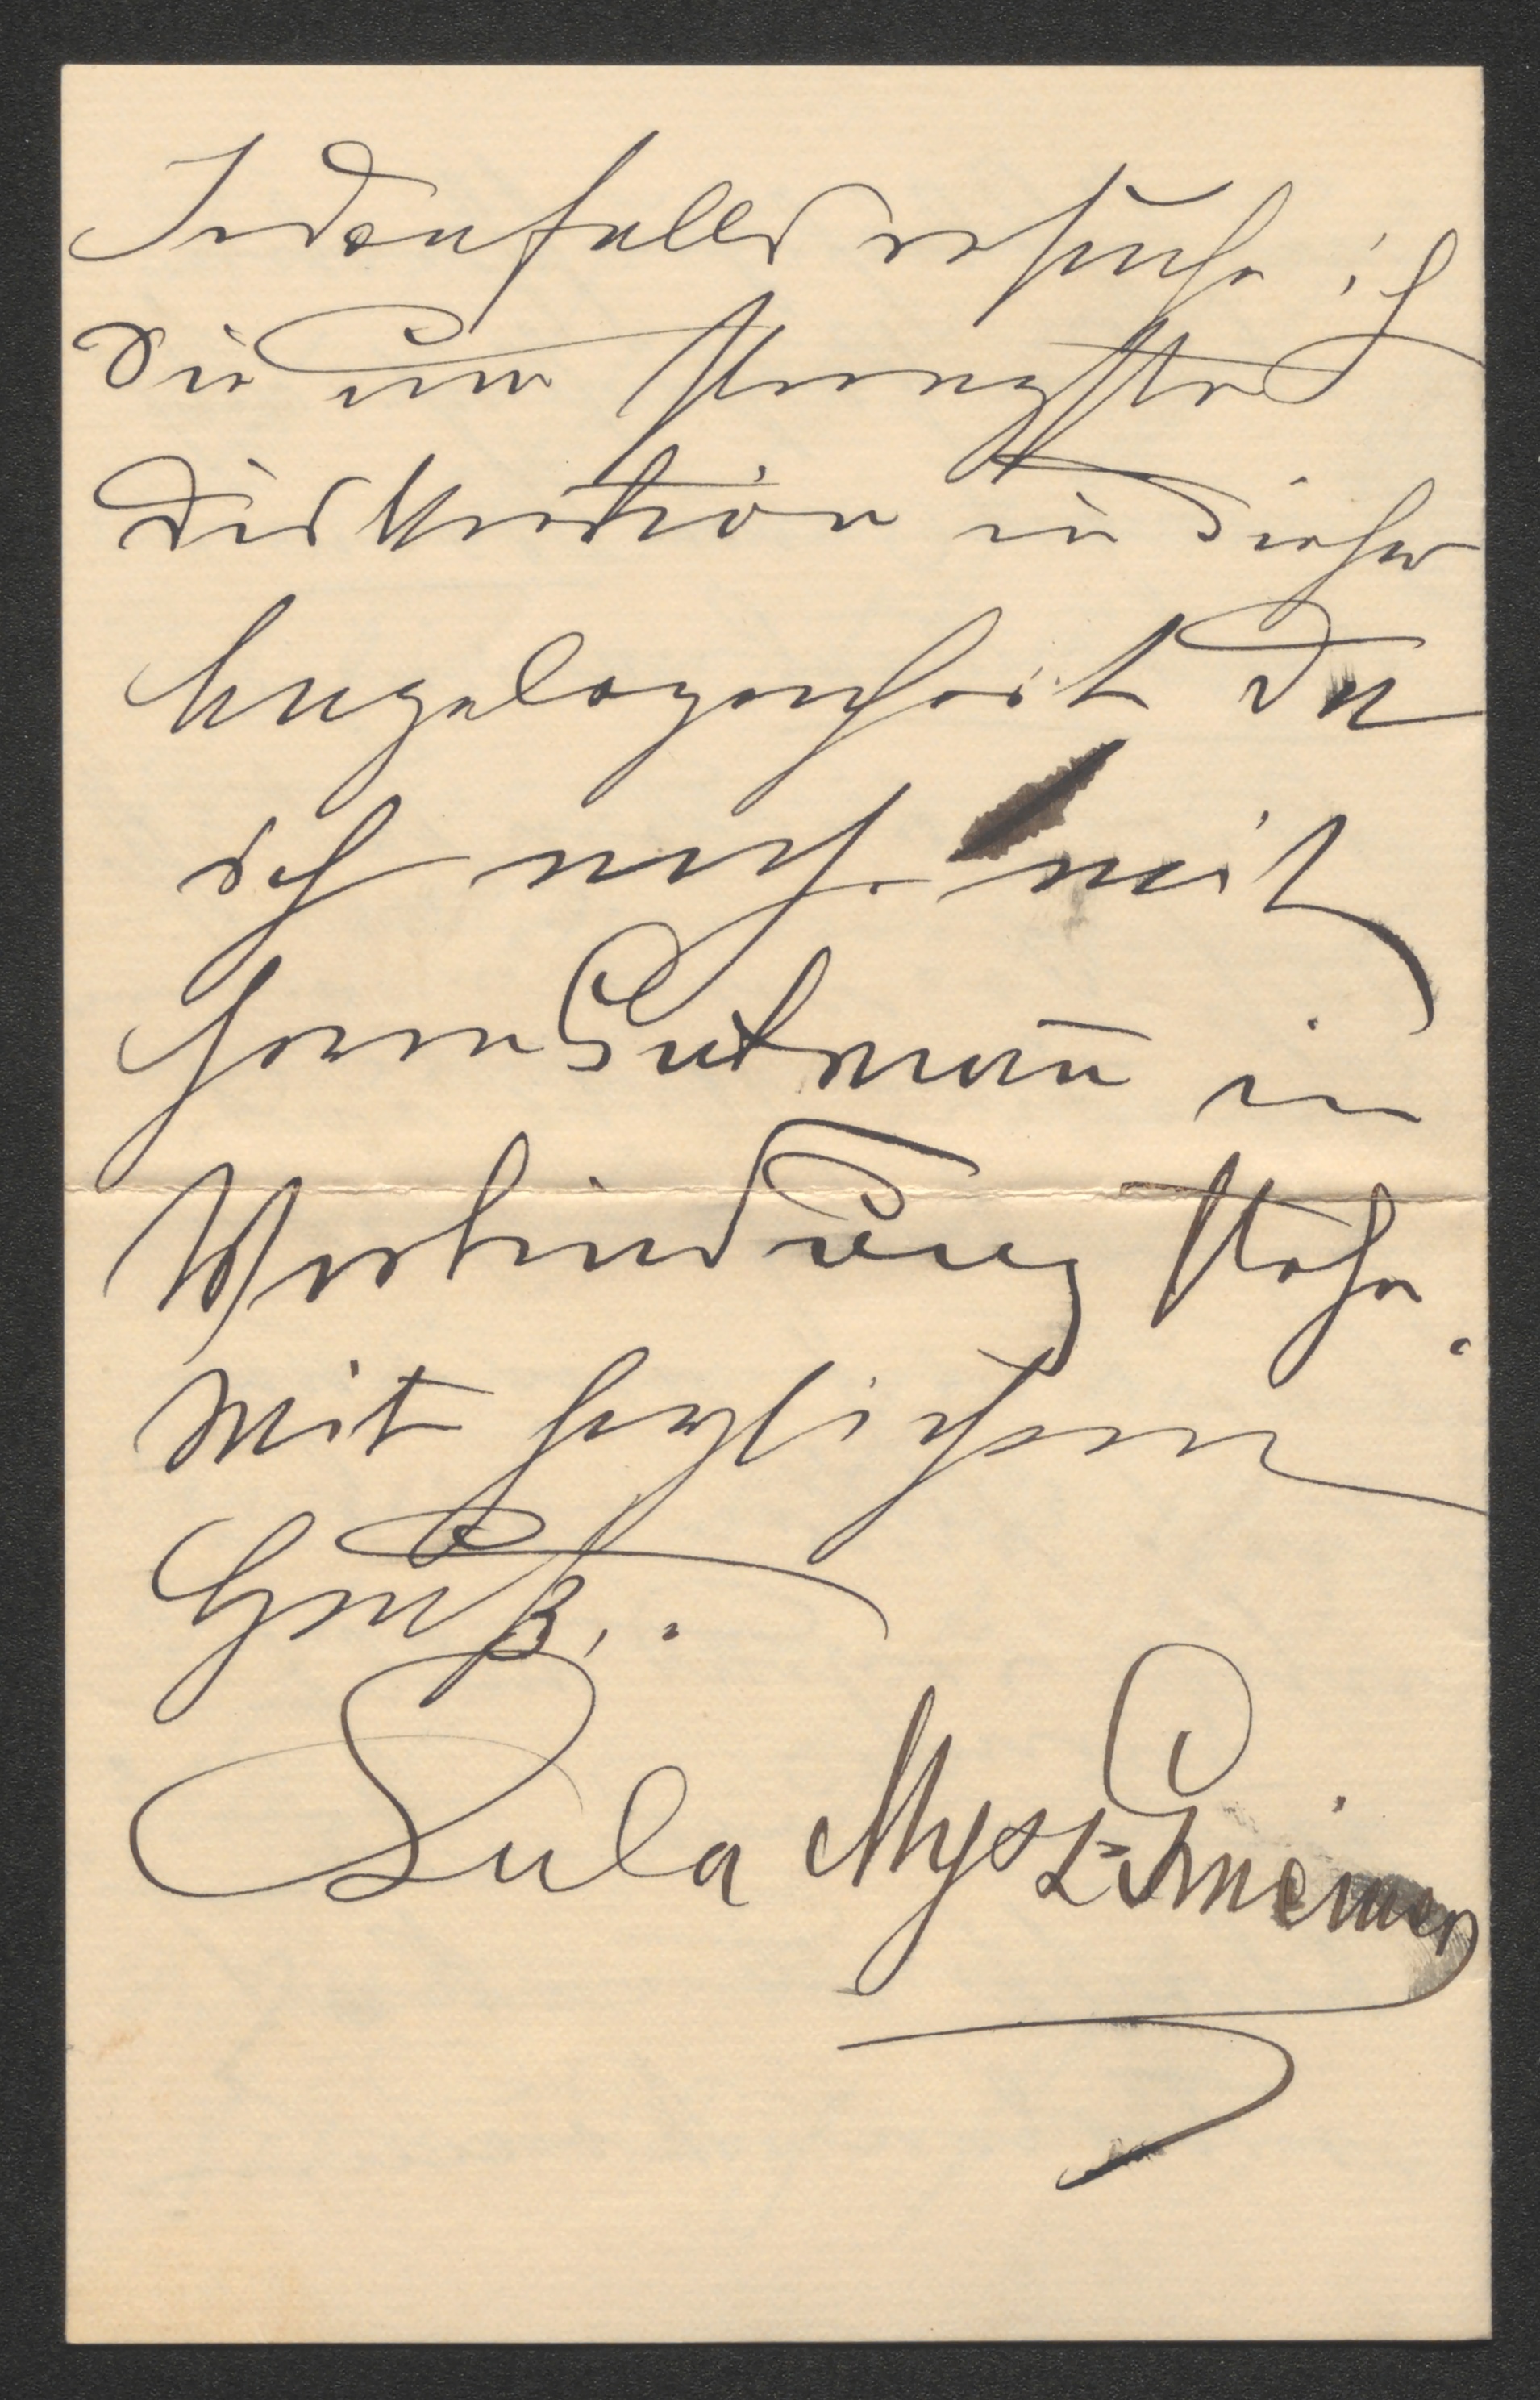 Jedenfalls ersuche ich
Sie um strengste
Diskretion in dieser
Angelegenheit da
ich noch mit
Herrn Gutmann in
Verbindung stehe.
Mit herzlichem
Gruß.
Lula Mysz-Gmeiner